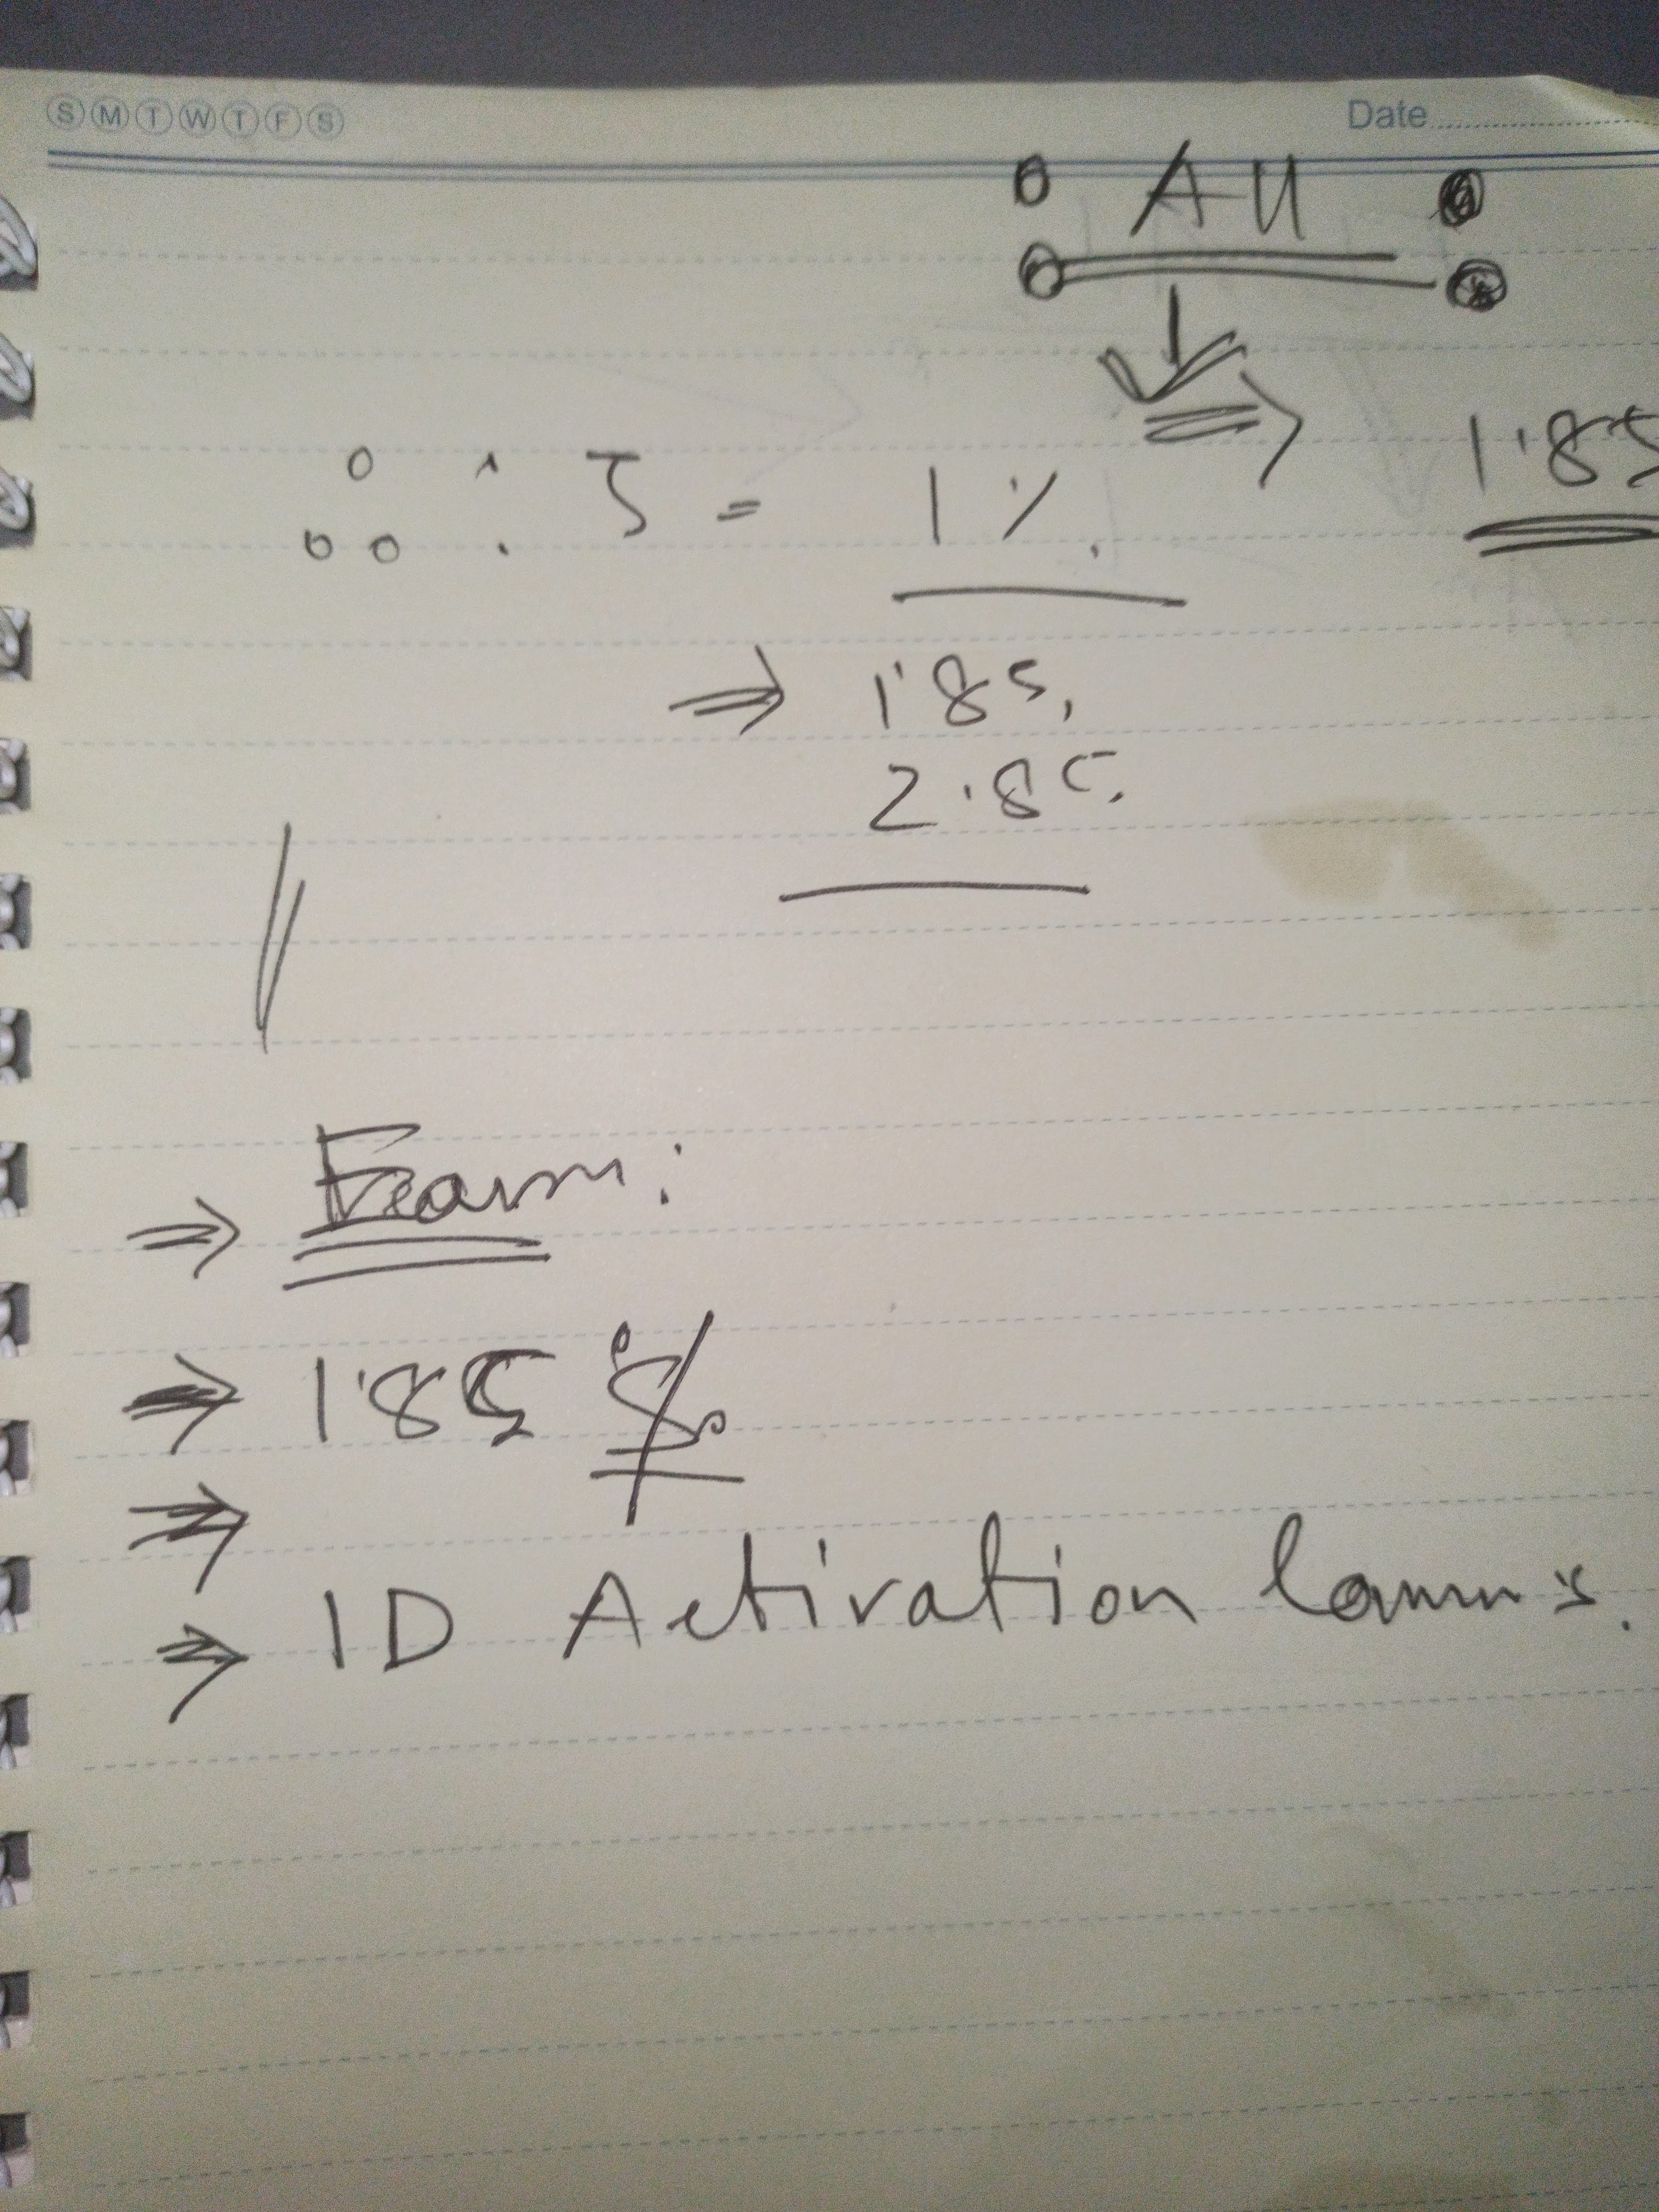 S M T W T F S
Date
All
1.85
: 5 = 1%.
⇒ 1.85,
2.85.
⇒ Earn:
⇒ 1.85 $
⇒
⇒ ID Activation